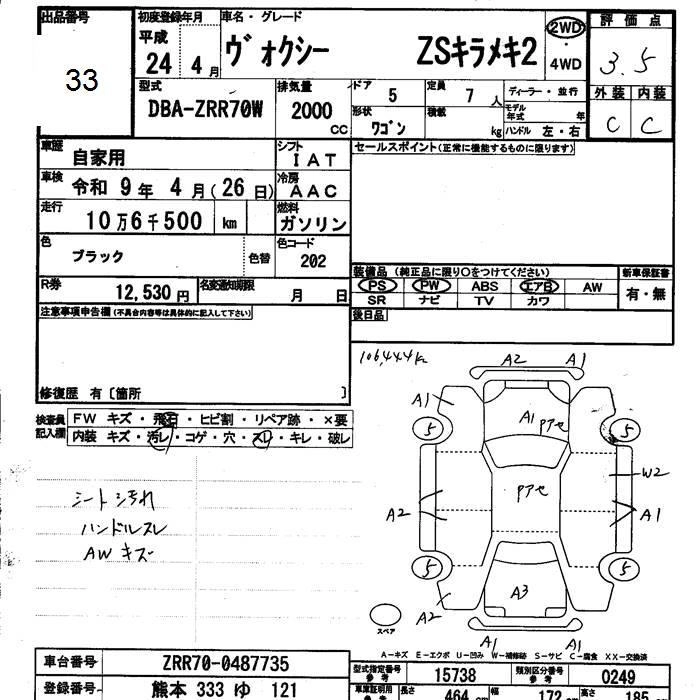 出品番号
33
初度登録年月
平成
24年 4月
車名・グレード
ヴォクシー ZSキラメキ2
2WD
・
4WD
評価点
3.5
外装 内装
C C
型式
DBA-ZRR70W
排気量
2000
CC
ドア 5
定員 7 人
ディーラー・並行
形状 ワゴン
積載 kg
モデル年式 年
ハンドル 左・右
車歴 自家用
シフト IAT
セールスポイント(正常に機能するものに限ります)
車検 令和 9 年 4 月(26 日)
冷房 AAC
走行 10万6千500 km
燃料 ガソリン
色 ブラック
色替
色コード 202
装備品 (純正品に限り〇をつけてください)
新車保証書
PS PW ABS エアB AW
有・無
SR ナビ TV カワ
R券 12,530円
名変通知期限 月 日
後日品
注意事項申告欄(不具合内容等は具体的に記入して下さい)
修復歴 有〔箇所 〕
検査員記入欄
FW キズ・飛石・ヒビ割・リペア跡・×要
内装 キズ・汚レ・コゲ・穴・スレ・キレ・破レ
シートシ汚れ
ハンドルスレ
AW キズ
106,444km
A2 A1
A1
A1 Pアセ
5 5
Pアセ
W2
A2 A1
5 5
A3
A2
スペア
A1 A1
A-キズ E-エクボ U-凹み W-補修跡 S-サビ C-腐食 XX-交換済
車台番号 ZRR70-0487735
型式指定番号 参考 15738
類別区分番号 参考 0249
登録番号 熊本 333 ゆ 121
車庫証明用 参考
長さ 464 cm
幅 172 cm
高さ 185 cm